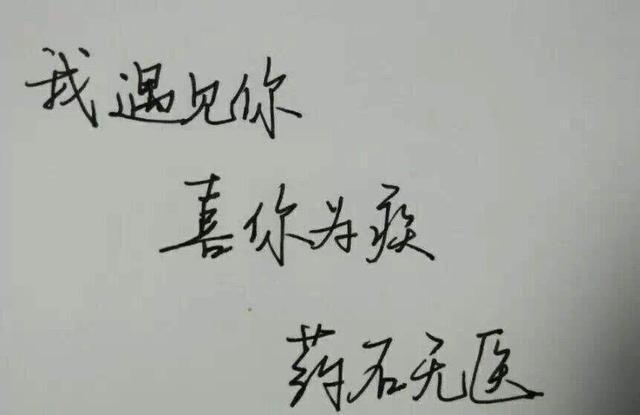 我遇见你
喜你为疾
药石无医